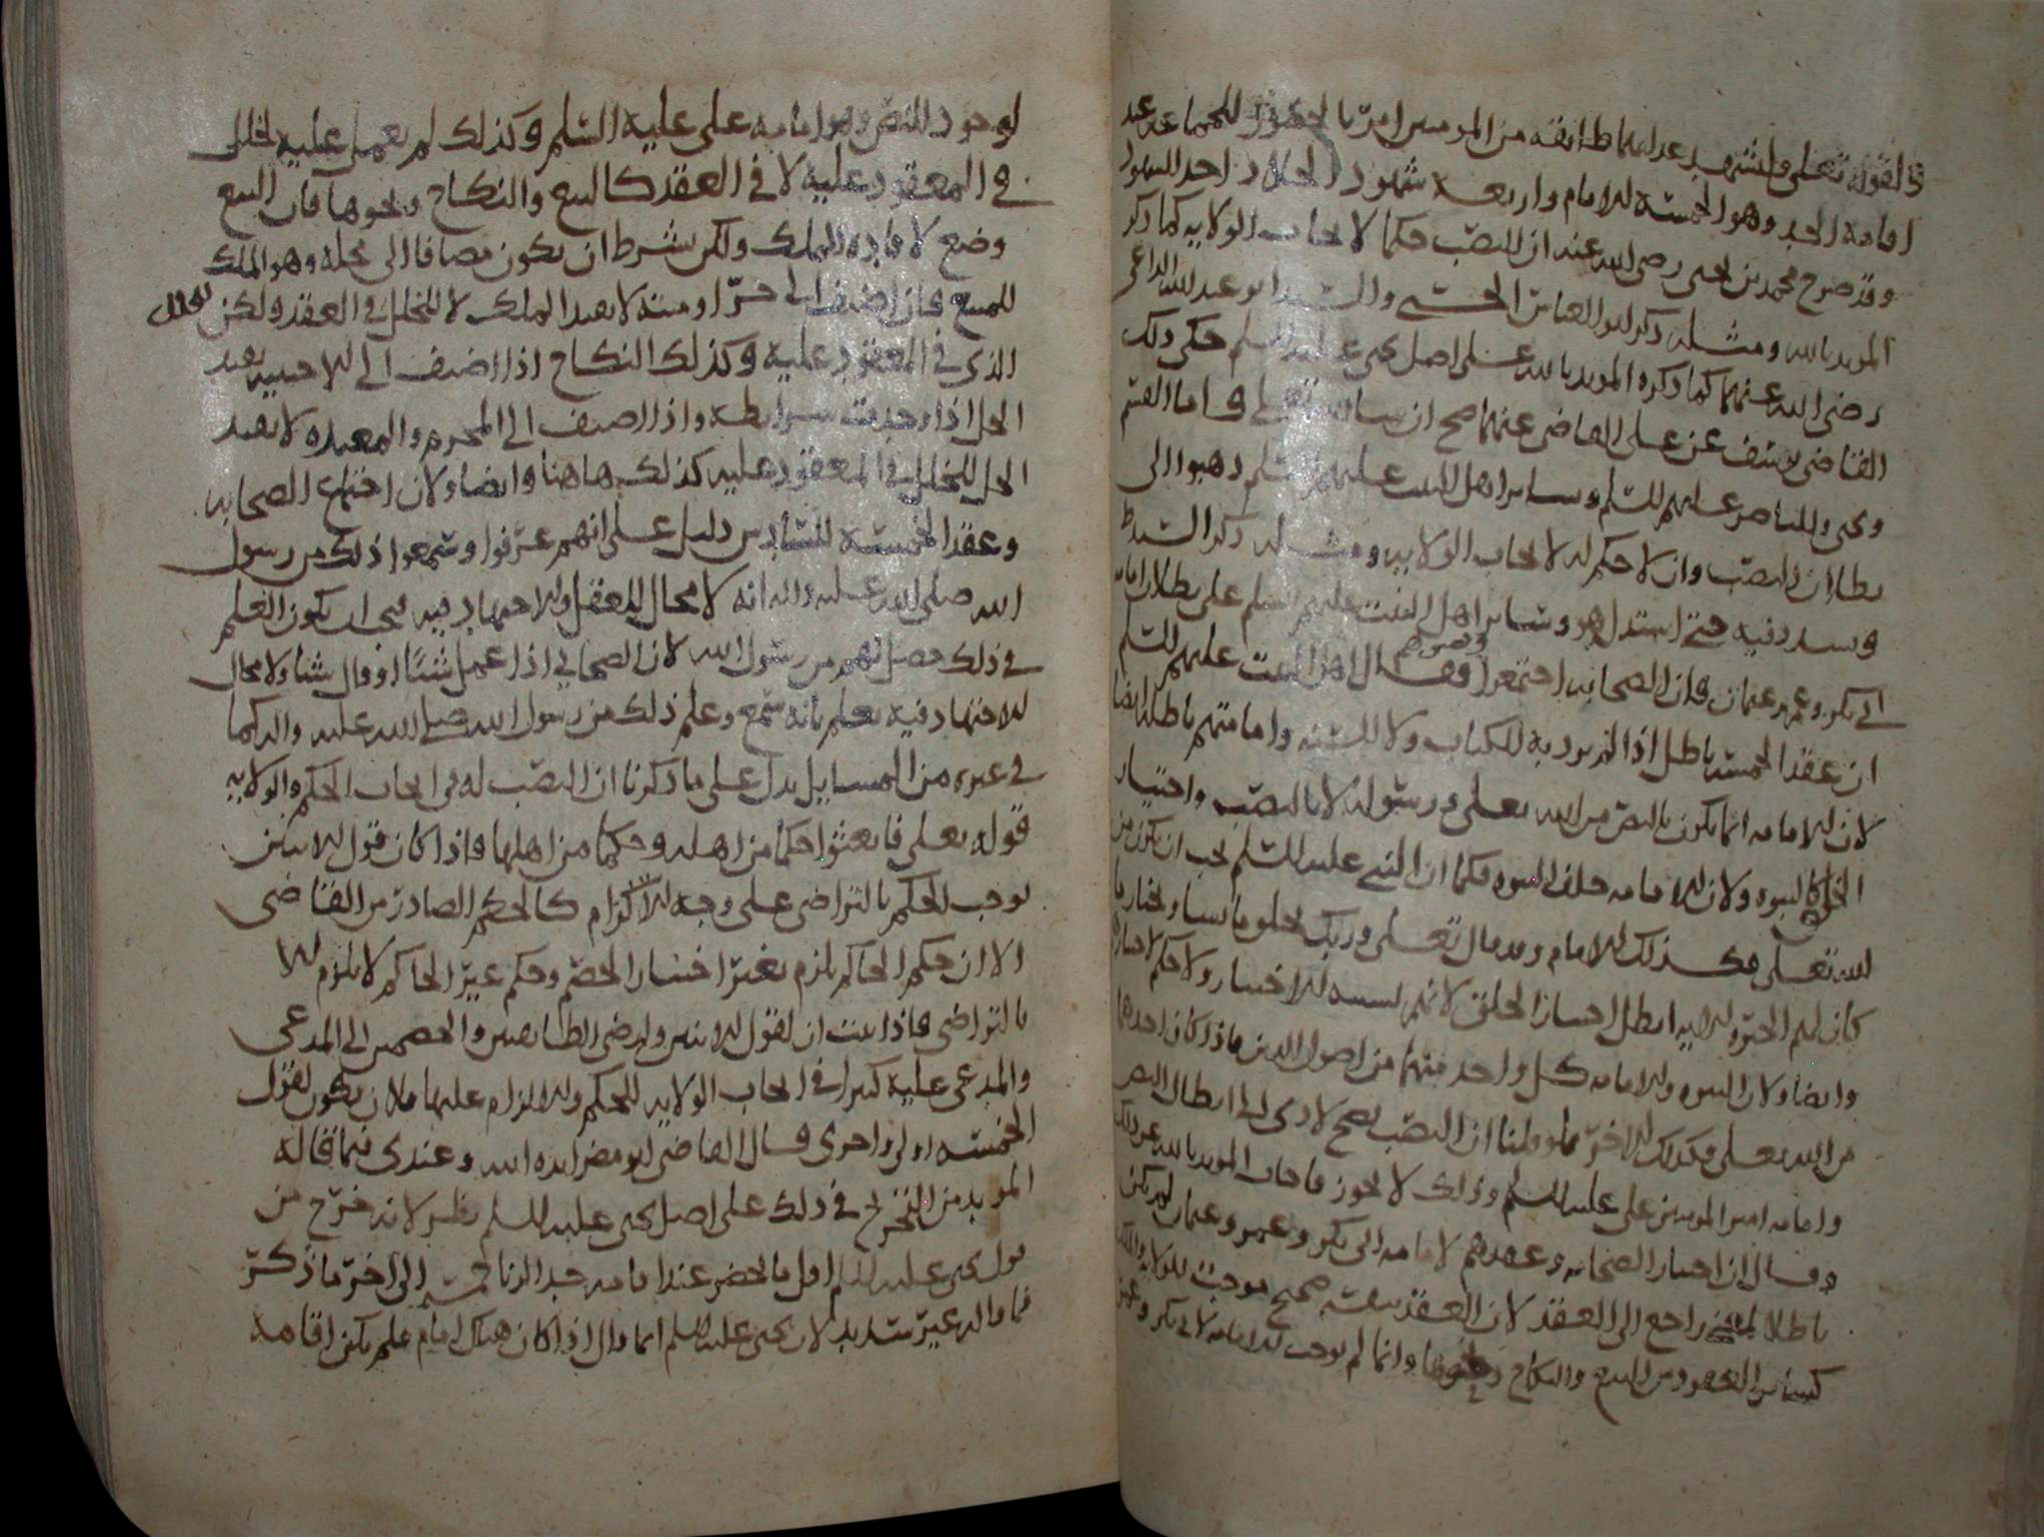 لقوله تعلى وليشهد عذابهما طائفة من المومنين امر بالحضور للجماعة عند
اقامة الحد وهو الخمسة للامام واربعة شهود احد الشهود
وقد صرح محمد بن يحيى رضى الله عنه ان النصب حكما لايجاب الولايه كما ذكر
المويد بالله ومثله ذكر ابو العباس الحسنى والسيد ابو عبد الله الداعى
رضى الله عنهما كما ذكره المويد بالله على اصل يحيى عليه السلم حكى ذلك
القاضى يوسف عن على القاضى عنهما صح ان سا الله تعلى فاما القسم
ويحيى والناصر عليهم السلم وساير اهل البيت عليهم السلم ذهبوا الى
بطلان النصب وان لا حكم له لايجاب الولايه ومثله ذكر السيد ط
وسدد فيه حتى استدل هو وساير اهل البيت عليهم السلم على بطلان امامه
ابى بكر وعمر وعثمان فان الصحابه اجتمعوا فقال اهل البيت عليهم السلم
ان عقد الخمسة باطل اذا لم يرد به الكتاب ولا السنه وامامتهم باطله ايضا
لان الامامه انما يكون بالنص من الله تعلى ورسوله لا بالنصب واختيار
الخلق كالنبوه ولان الامامه خلف النبوه فكما ان النبى عليه السلم يجب ان يكون من
الله تعلى فكذلك الامام وقد قال تعلى وربك يخلق ما يشا ويختار ما
كان لهم الخيرة الايه ابطل اختيار الخلق لانهم ليسه للاختيار ولا حكم لاختياره
وايضا ولان النبوه والامامه كل واحد منهما من اصول الدين فاذا كان احدهما
من الله تعلى فكذلك الاخر فلو قلنا ان النصب يصح لادى الى ابطال النص
وامامه امير المومنين على عليه السلم وذلك لا يجوز فاجاب المويد بالله عن ذلك
وقال ان اختيار الصحابه وعقدهم لامامه ابى بكر وعمر وعثمان لم يكن
باطلا لمعنى راجع الى العقد لان العقد بنفسه صحيح موجب للولايه والملك
كساير العقود من البيع والنكاح ونحوها وانما لم يوجب الامامه لابى بكر وغيره
لوجود النص وهو امامه على عليه السلم وكذلك لم يعمل عليه لخلل
فى المعقود عليه لا فى العقد كالبيع والنكاح ونحوها فان البيع
وضع لافاده الملك ولكن شرط ان يكون مضافا الى محله وهو الملك
للمبيع فان اضيف الى حر او ميتة لا يفيد الملك لا لخلل فى العقد ولكن لخلل
الذى فى المعقود عليه وكذلك النكاح اذا اضيف الى الاجنبيه يفيد
الحل اذا وجدت شرايطه واذا اضيف الى المحرم والمعتده لا يفيد
الحل للخلل فى المعقود عليه كذلك هاهنا وايضا ولان اجتماع الصحابه
وعقد الخمسة للسادس دليل على انهم عرفوا وسمعوا ذلك من رسول
الله صلى الله عليه واله انه لا مجال للعقل والاجتهاد فيه فيجب ان يكون العلم
فى ذلك حصل لهم من رسول الله لان الصحابي اذا عمل شئًا او قال شئا ولا مجال
للاجتهاد فيه يعلم بانه سمع وعلم ذلك من رسول الله صلى الله عليه واله كما
فى غيره من المسايل يدل على ما ذكرنا ان النصب له فى ايجاب الحكم والولايه
قوله تعلى فابعثوا حكما من اهله وحكما من اهلها فاذا كان قول الاثنين
يوجب الحكم بالتراضى على وجه الاكرام كالحكم الصادر من القاضى
الا ان حكم الحاكم يلزم بغير اختيار الخصم وحكم غير الحاكم لا يلزم الا
بالتراضى فاذا ثبت ان لقول الاثنين ولرضى الطايفين والخصمين الى المدعى
والمدعى عليه كبيرا فى ايجاب الولايه للحكم والالزام عليهما فلان يكون لقول
الخمسة اولى واحرى قال القاضى ابو مضر ايده الله وعندى فيما قاله
المويد من التخرج فى ذلك على اصل يحيى عليه السلم نظر لانه خرج من
قول يحيى عليه السلم اقل ما يحضر عند اقامه حد الزنا خمسه الى اخر ما ذكر
فما قاله غير سديد لان يحيى عليه السلم انما قال اذا كان هناك امام فلم يكن اقامة